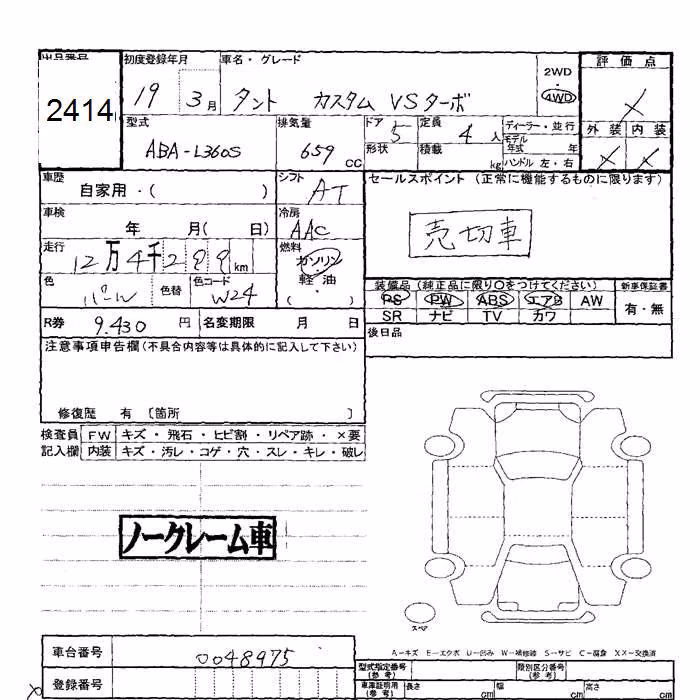 出品番号 初度登録年月 車名・グレード 2WD・4WD 評価点
2414 19 3月 タント カスタム VSターボ ×
型式 排気量 ドア 定員 ディーラー・並行 外装 内装
ABA-L360S 659 CC 5 4人 モデル年式 年 × ×
形状 積載 kg ハンドル 左・右
車歴 シフト セールスポイント (正常に機能するものに限ります)
自家用・( ) AT
車検 冷房 売切車
年 月( 日) AAC
走行 燃料
12万4千299km ガソリン
軽・油
・( )
色 色替 色コード 装備品(純正品に限り○をつけてください) 新車保証書
パール W24 PS PW ABS エアB AW 有・無
SR ナビ TV カワ
R券 9.430円 名変期限 月 日 後日品
注意事項申告欄(不具合内容等は具体的に記入して下さい)
修復歴 有 〔箇所 〕
検査員 FW キズ・飛石・ヒビ割・リペア跡・×要
記入欄 内装 キズ・汚レ・コゲ・穴・スレ・キレ・破レ
ノークレーム車
スペア
A-キズ E-エクボ U-凹み W-補修跡 S-サビ C-腐食 XX-交換済
車台番号 0048975 型式指定番号(参考) 類別区分番号(参考)
登録番号 車庫証明用(参考) 長さ cm 幅 cm 高さ cm